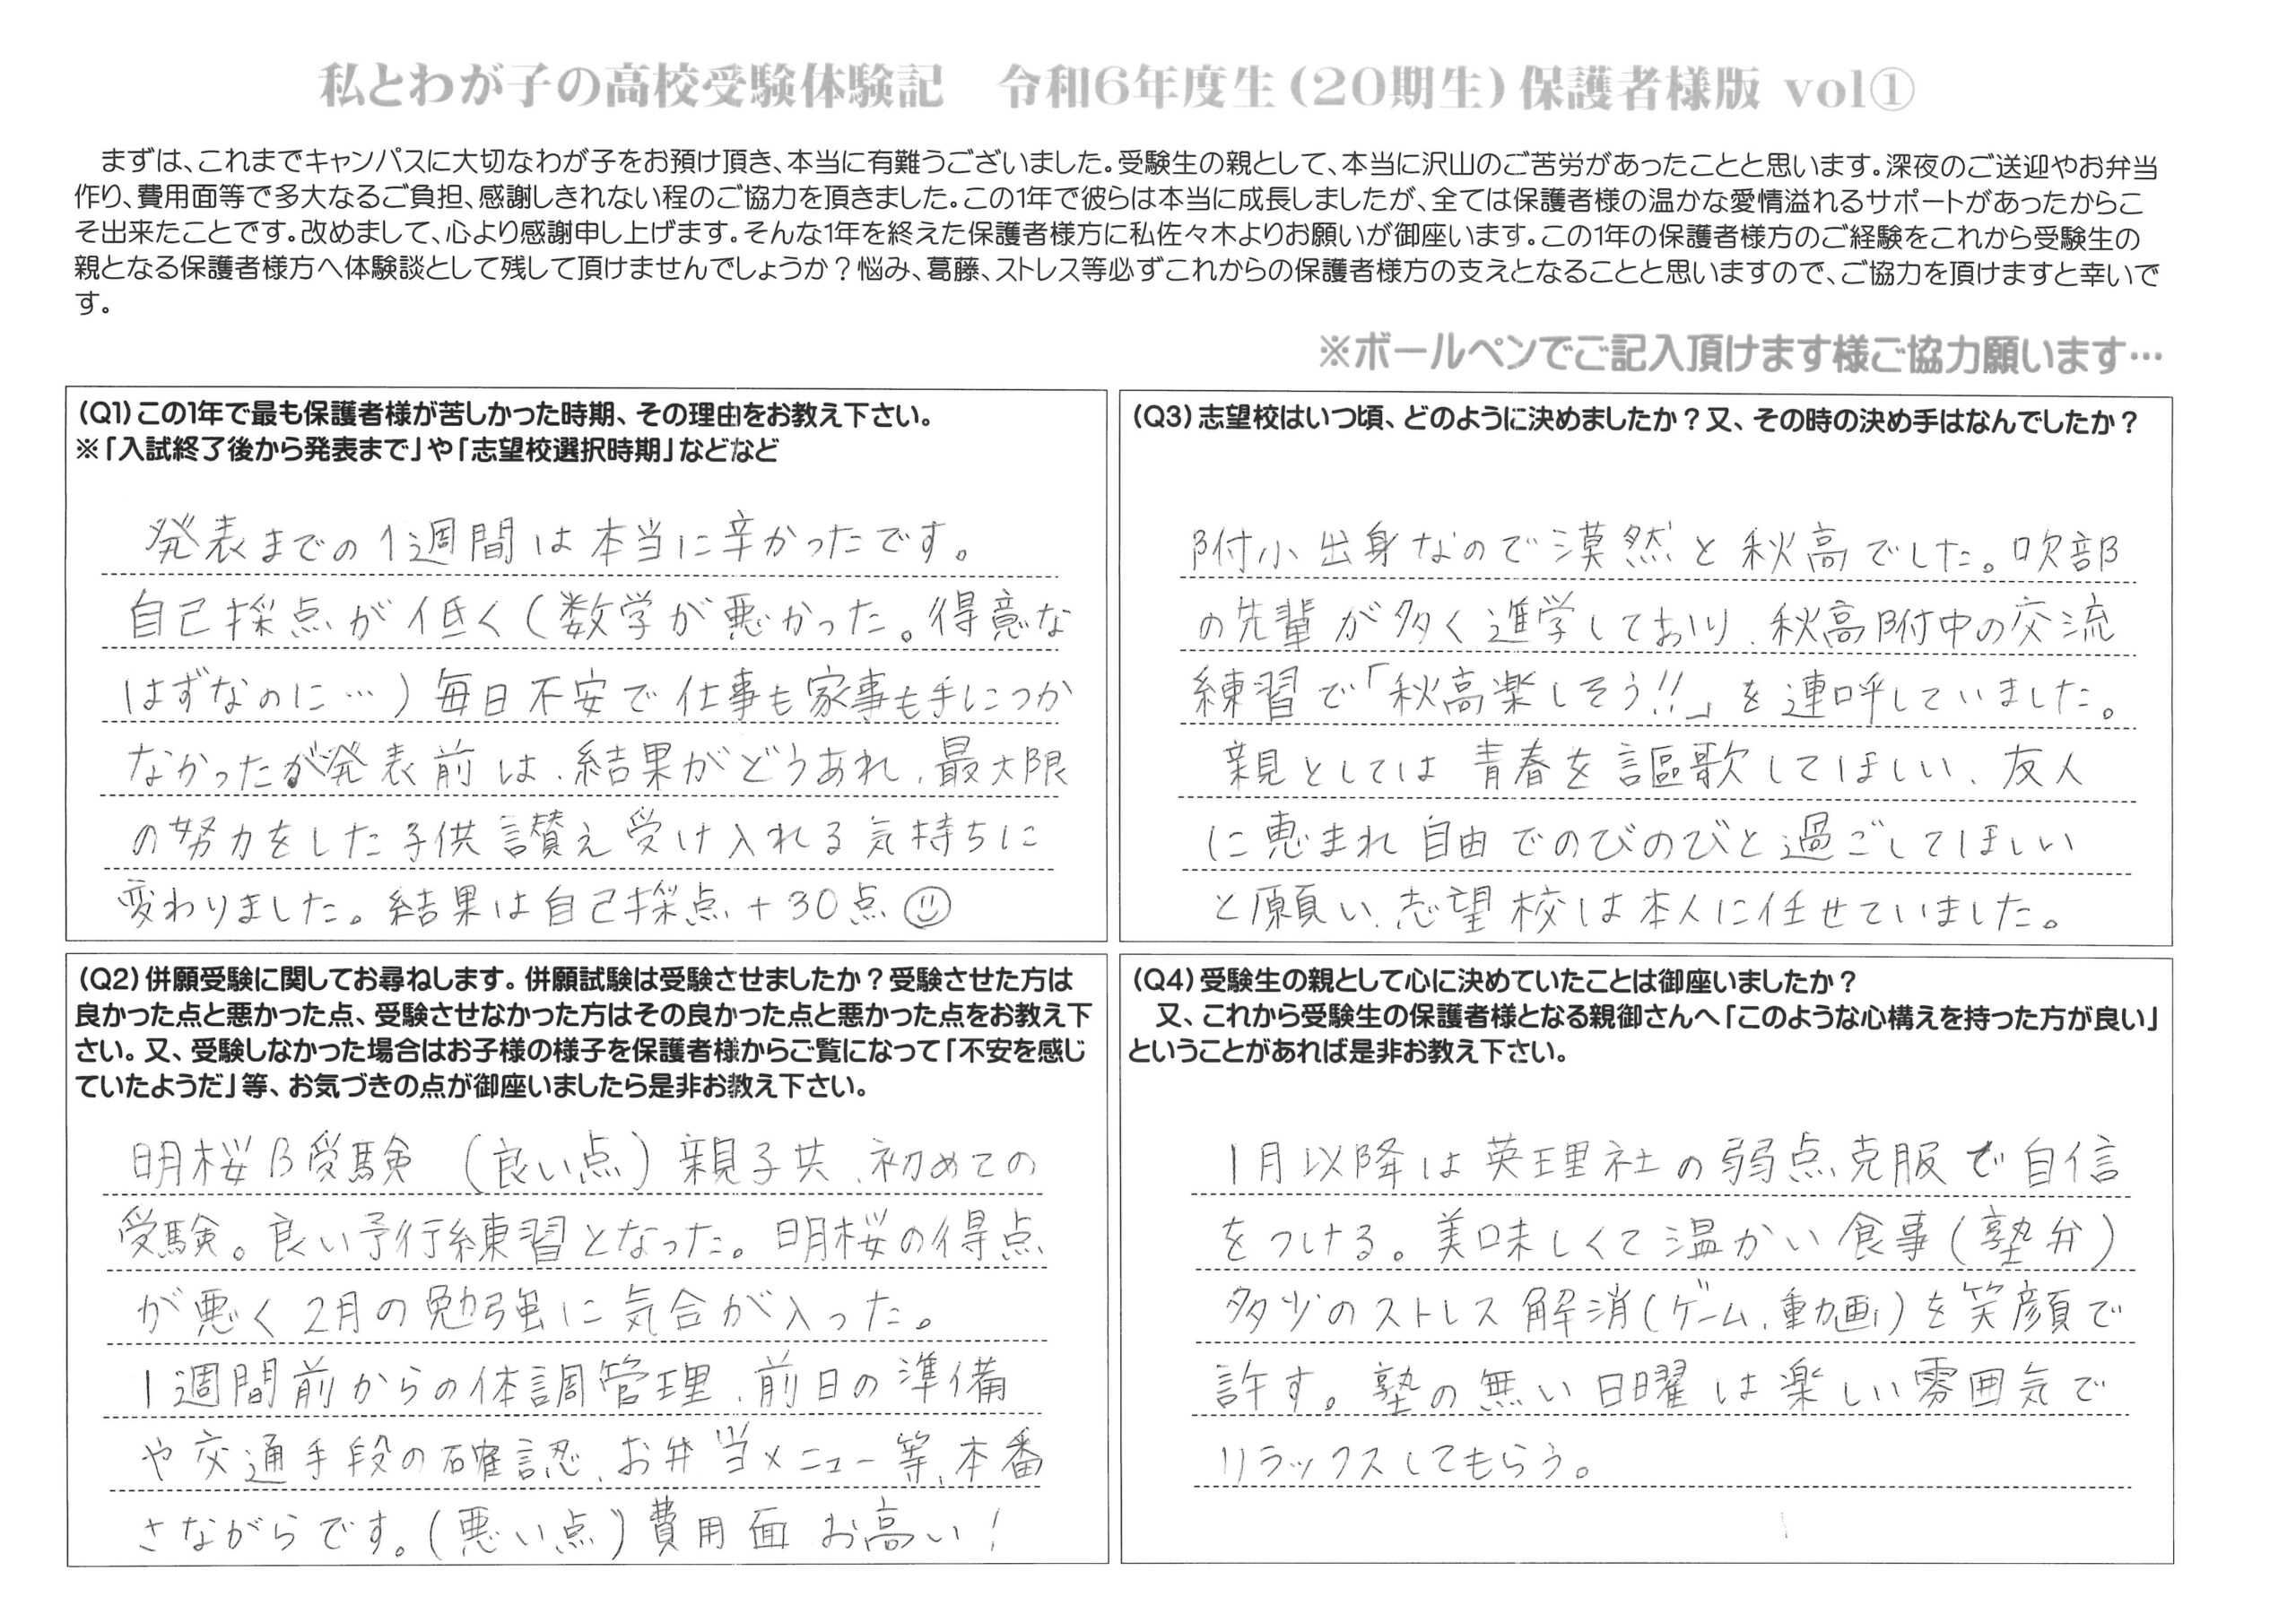 私とわが子の高校受験体験記　令和6年度生(20期生)保護者様版 vol①
まずは、これまでキャンパスに大切なわが子をお預け頂き、本当に有難うございました。受験生の親として、本当に沢山のご苦労があったことと思います。深夜のご送迎やお弁当
作り、費用面等で多大なるご負担、感謝しきれない程のご協力を頂きました。この1年で彼らは本当に成長しましたが、全ては保護者様の温かな愛情溢れるサポートがあったからこ
そ出来たことです。改めまして、心より感謝申し上げます。そんな1年を終えた保護者様方に私佐々木よりお願いが御座います。この1年の保護者様方のご経験をこれから受験生の
親となる保護者様方へ体験談として残して頂けませんでしょうか？悩み、葛藤、ストレス等必ずこれからの保護者様方の支えとなることと思いますので、ご協力を頂けますと幸いで
す。
※ボールペンでご記入頂けます様ご協力願います…
(Q1)この1年で最も保護者様が苦しかった時期、その理由をお教え下さい。
※「入試終了後から発表まで」や「志望校選択時期」などなど
発表までの1週間は本当に辛かったです。
自己採点が低く(数学が悪かった。得意な
はずなのに…)毎日不安で仕事も家事も手につか
なかったが発表前は、結果がどうあれ、最大限
の努力をした子供讃え受け入れる気持ちに
変わりました。結果は自己採点+30点☺
(Q2)併願受験に関してお尋ねします。併願試験は受験させましたか？受験させた方は
良かった点と悪かった点、受験させなかった方はその良かった点と悪かった点をお教え下
さい。又、受験しなかった場合はお子様の様子を保護者様からご覧になって「不安を感じ
ていたようだ」等、お気づきの点が御座いましたら是非お教え下さい。
明桜B受験　(良い点)親子共、初めての
受験。良い予行練習となった。明桜の得点
が悪く2月の勉強に気合が入った。
1週間前からの体調管理、前日の準備
や交通手段の確認、お弁当メニュー等、本番
さながらです。(悪い点)費用面 お高い！
(Q3)志望校はいつ頃、どのように決めましたか？又、その時の決め手はなんでしたか？
附小出身なので漠然と秋高でした。吹部
の先輩が多く進学しており、秋高附中の交流
練習で「秋高楽しそう!!」を連呼していました。
親としては青春を謳歌してほしい、友人
に恵まれ自由でのびのびと過ごしてほしい
と願い、志望校は本人に任せていました。
(Q4)受験生の親として心に決めていたことは御座いましたか？
又、これから受験生の保護者様となる親御さんへ「このような心構えを持った方が良い」
ということがあれば是非お教え下さい。
1月以降は英理社の弱点克服で自信
をつける。美味しくて温かい食事(塾弁)
多少のストレス解消(ゲーム、動画)を笑顔で
許す。塾の無い日曜は楽しい雰囲気で
リラックスしてもらう。